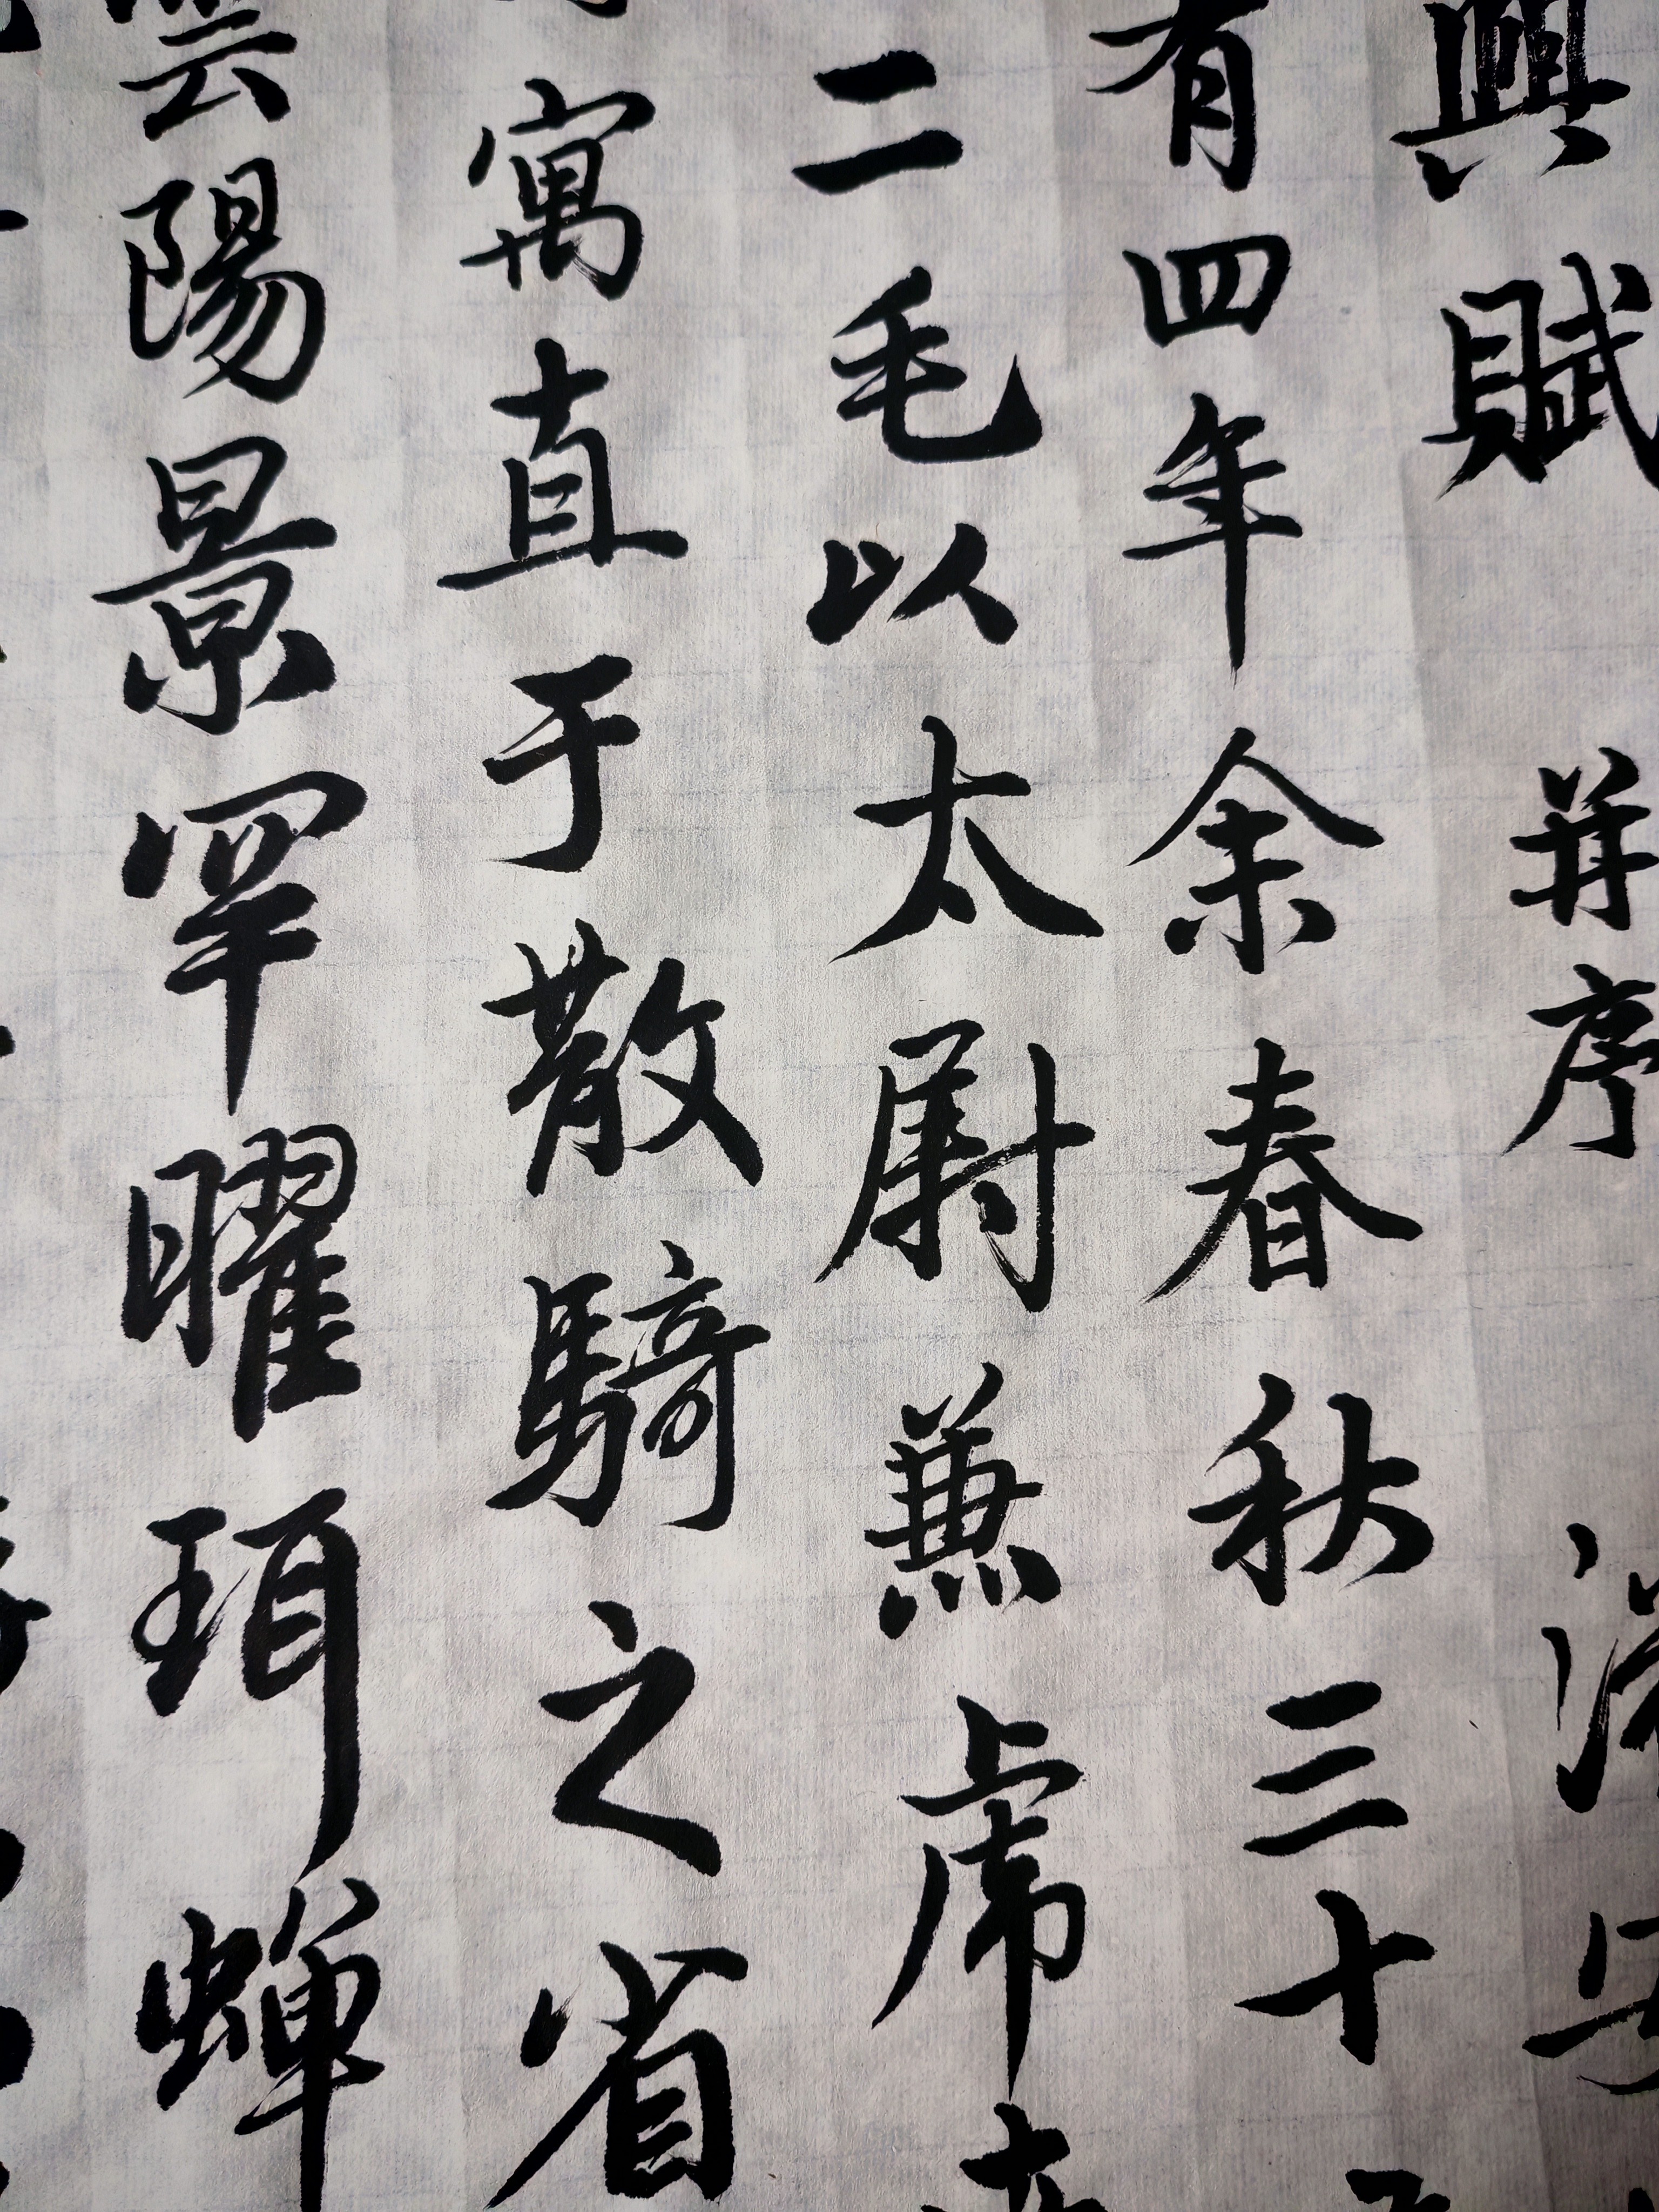 興賦 并序
有四年余春秋三十
二毛以太尉兼虎
寓直于散騎之省
雲陽景罕曜珥蟬